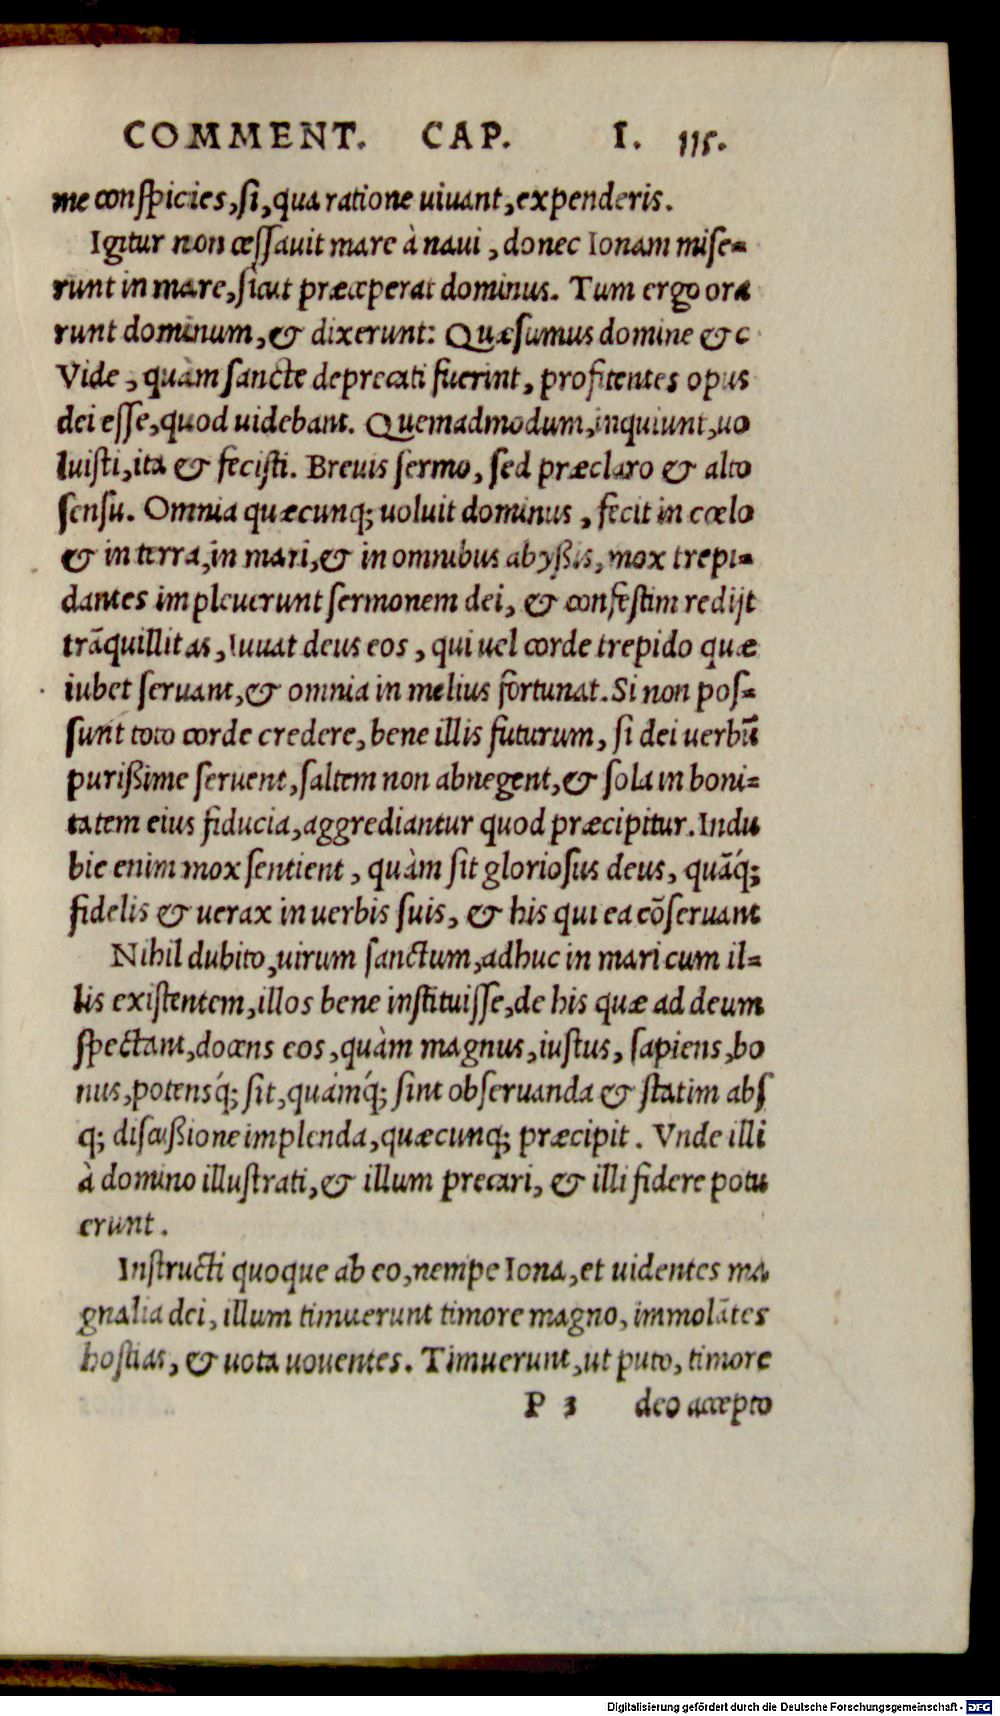 COMMENT. CAP. I. 115.
me conspicies, si, qua ratione uiuant, expenderis.
Igitur non cessauit mare à naui, donec Ionam mise=
runt in mare, sicut præceperat dominus. Tum ergo ora
runt dominum, & dixerunt: Quæsumus domine & c
Vide, quàm sancte deprecati fuerint, profitentes opus
dei esse, quod uidebant. Quemadmodum, inquiunt, uo
luisti, ita & fecisti. Breuis sermo, sed præclaro & alto
sensu. Omnia quæcunq; uoluit dominus, fecit in cœlo
& in terra, in mari, & in omnibus abyßis, mox trepi=
dantes impleuerunt sermonem dei, & confestim redijt
trãquillitas, Iuuat deus eos, qui uel corde trepido quæ
iubet seruant, & omnia in melius fortunat. Si non pos=
sunt toto corde credere, bene illis futurum, si dei uerbũ
purißime seruent, saltem non abnegent, & sola in boni=
tatem eius fiducia, aggrediantur quod præcipitur. Indu
bie enim mox sentient, quàm sit gloriosus deus, quãq́;
fidelis & uerax in uerbis suis, & his qui ea cõseruant
Nihil dubito, uirum sanctum, adhuc in mari cum il=
lis existentem, illos bene instituisse, de his quæ ad deum
spectant, docens eos, quàm magnus, iustus, sapiens, bo
nus, potensq́; sit, quámq́; sint obseruanda & statim abs
q; discußione implenda, quæcunq; præcipit. Vnde illi
à domino illustrati, & illum precari, & illi fidere potu
erunt.
Instructi quoque ab eo, nempe Iona, et uidentes ma
gnalia dei, illum timuerunt timore magno, immolãtes
hostias, & uota uouentes. Timuerunt, ut puto, timore
P 3 deo accepto
Digitalisierung gefördert durch die Deutsche Forschungsgemeinschaft - DFG